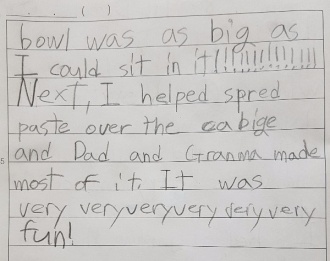 bowl was as big as
I could sit in it!!!!!!!!!!!!!!
Next, I helped spred
paste over the cabige
and Dad and Granma made
most of it. It was
very veryveryvery very very
fun!